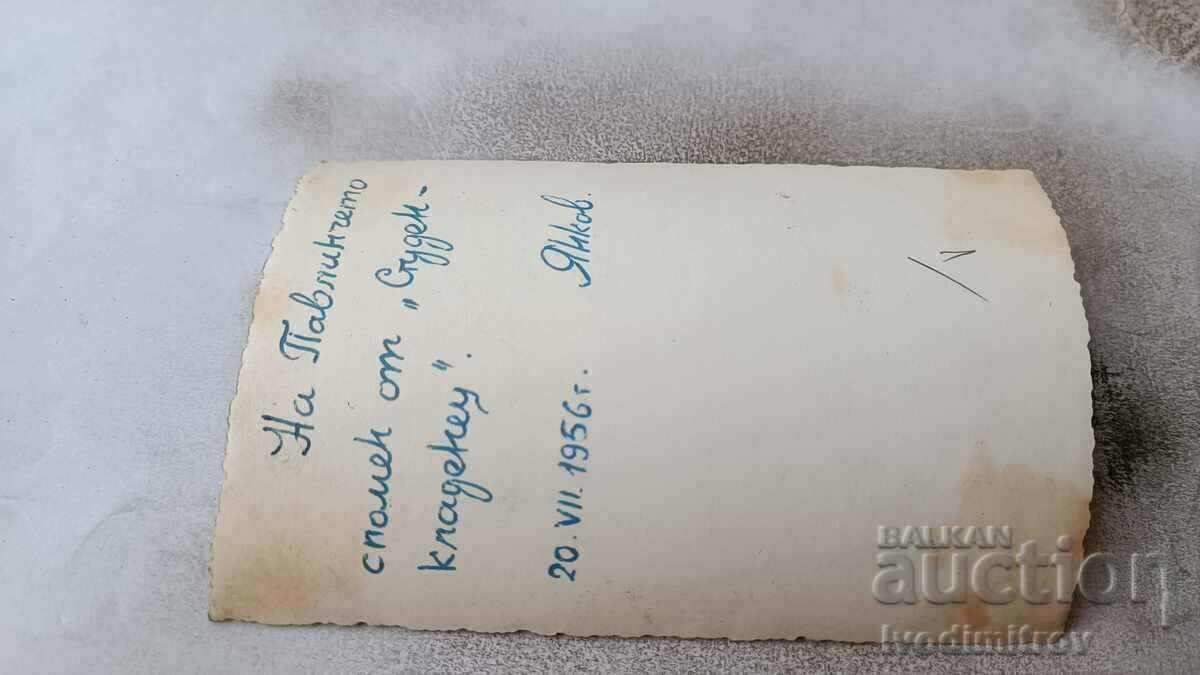 На Павлинчето
спомен от „Студен-
кладенец".
20. VII. 1956 г. Янков.
BALKAN
auction
Ivodimitrov